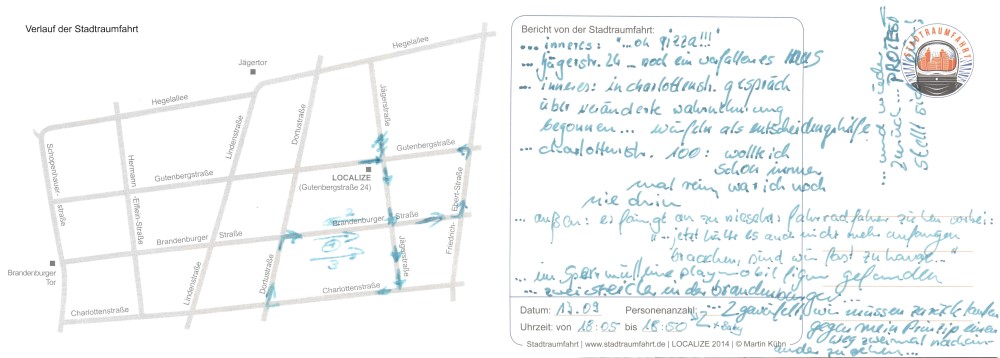 Verlauf der Stadtraumfahrt
Hegelallee
Jägertor
Hegelallee
Schopenhauer-
straße
Hermann
-Elflein-Straße
Lindenstraße
Dortustraße
Jägerstraße
Gutenbergstraße
Gutenbergstraße
LOCALIZE
(Gutenbergstraße 24)
Friedrich-Ebert-Straße
Brandenburger Straße
Brandenburger Straße
Brandenburger
Tor
Lindenstraße
Dortustraße
Jägerstraße
Charlottenstraße
Charlottenstraße
Bericht von der Stadtraumfahrt:
... inneres: "...oh pizza!!!"
... Jägerstr. 24 ... noch ein verfallenes HAUS
... inneres: in charlottenstr. gespräch
über veränderte wahrnehmung
begonnen... würfeln als entscheidungshilfe
... charlottenstr. 100: wollte ich
schon immer
mal rein, war ich noch
nie drin
... außen: es fängt an zu nieseln: fahrradfahrer ziehen vorbei:
"...jetzt hätte es auch nicht mehr anfangen
brauchen, sind wir fast zu hause..."
... im Sperrmüll eine playmobil figur gefunden
... zwei streicher in der brandenburger...
Datum: 13.09 Personenanzahl: 2
+ Baby
Uhrzeit: von 18:05 bis 18:50
... 2 gewürfelt, wir müssen zurück laufen
gegen mein Prinzip einen
weg zweimal nachein-
ander zu gehen...
... und wieder
zurück... PROTEST
stellt sich
STADTRAUMFAHRT
Stadtraumfahrt | www.stadtraumfahrt.de | LOCALIZE 2014 | © Martin Kühn